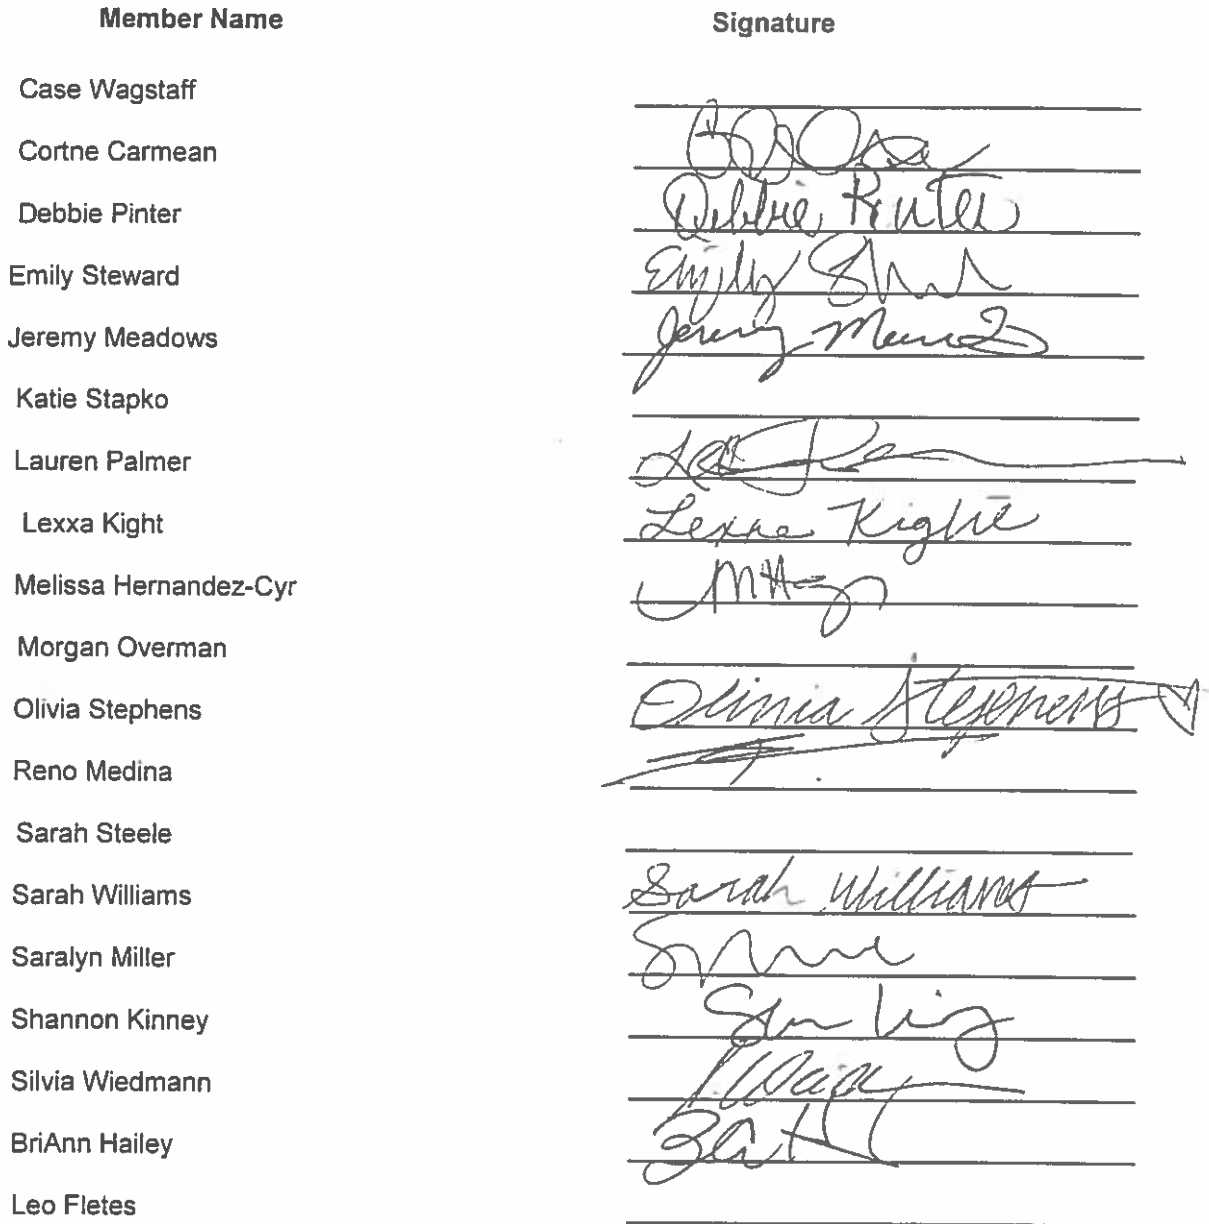 Member Name Signature
Case Wagstaff
Cortne Carmean
Debbie Pinter Debbie Pinter
Emily Steward Emily
Jeremy Meadows Jeremy
Katie Stapko
Lauren Palmer
Lexxa Kight Lexxa Kight
Melissa Hernandez-Cyr
Morgan Overman
Olivia Stephens Olivia Stephens
Reno Medina
Sarah Steele
Sarah Williams Sarah Williams
Saralyn Miller
Shannon Kinney
Silvia Wiedmann
BriAnn Hailey
Leo Fletes